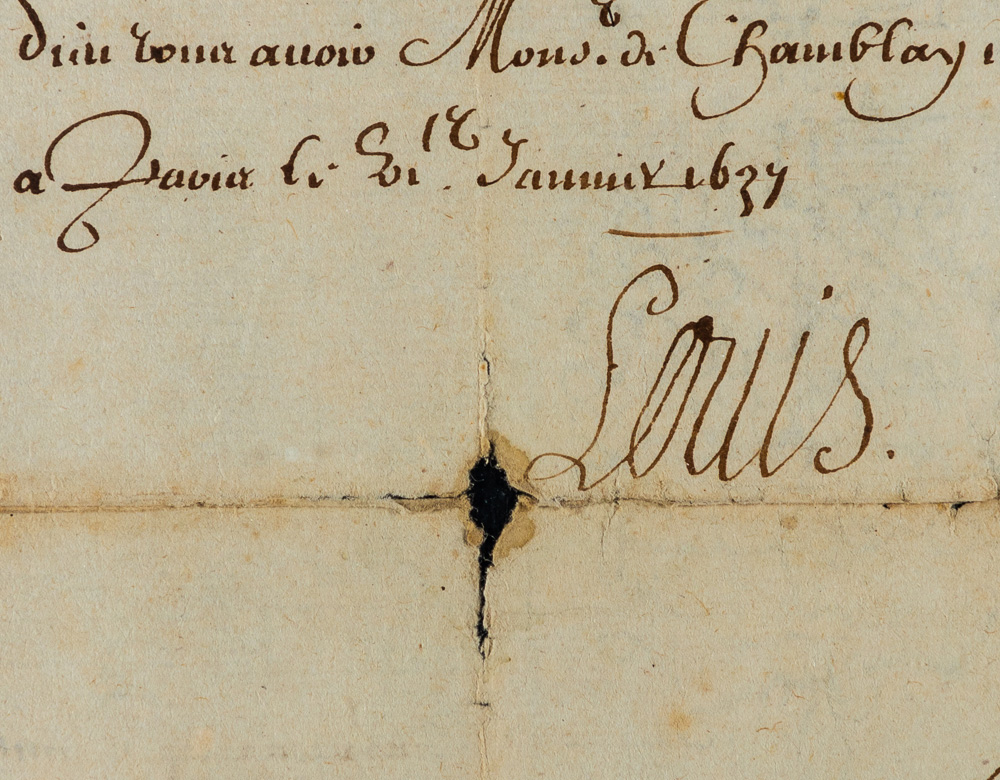 dieu vous auoir Mons.r de Chamblay
a Paris le vi.e Januier 1637
Louis.